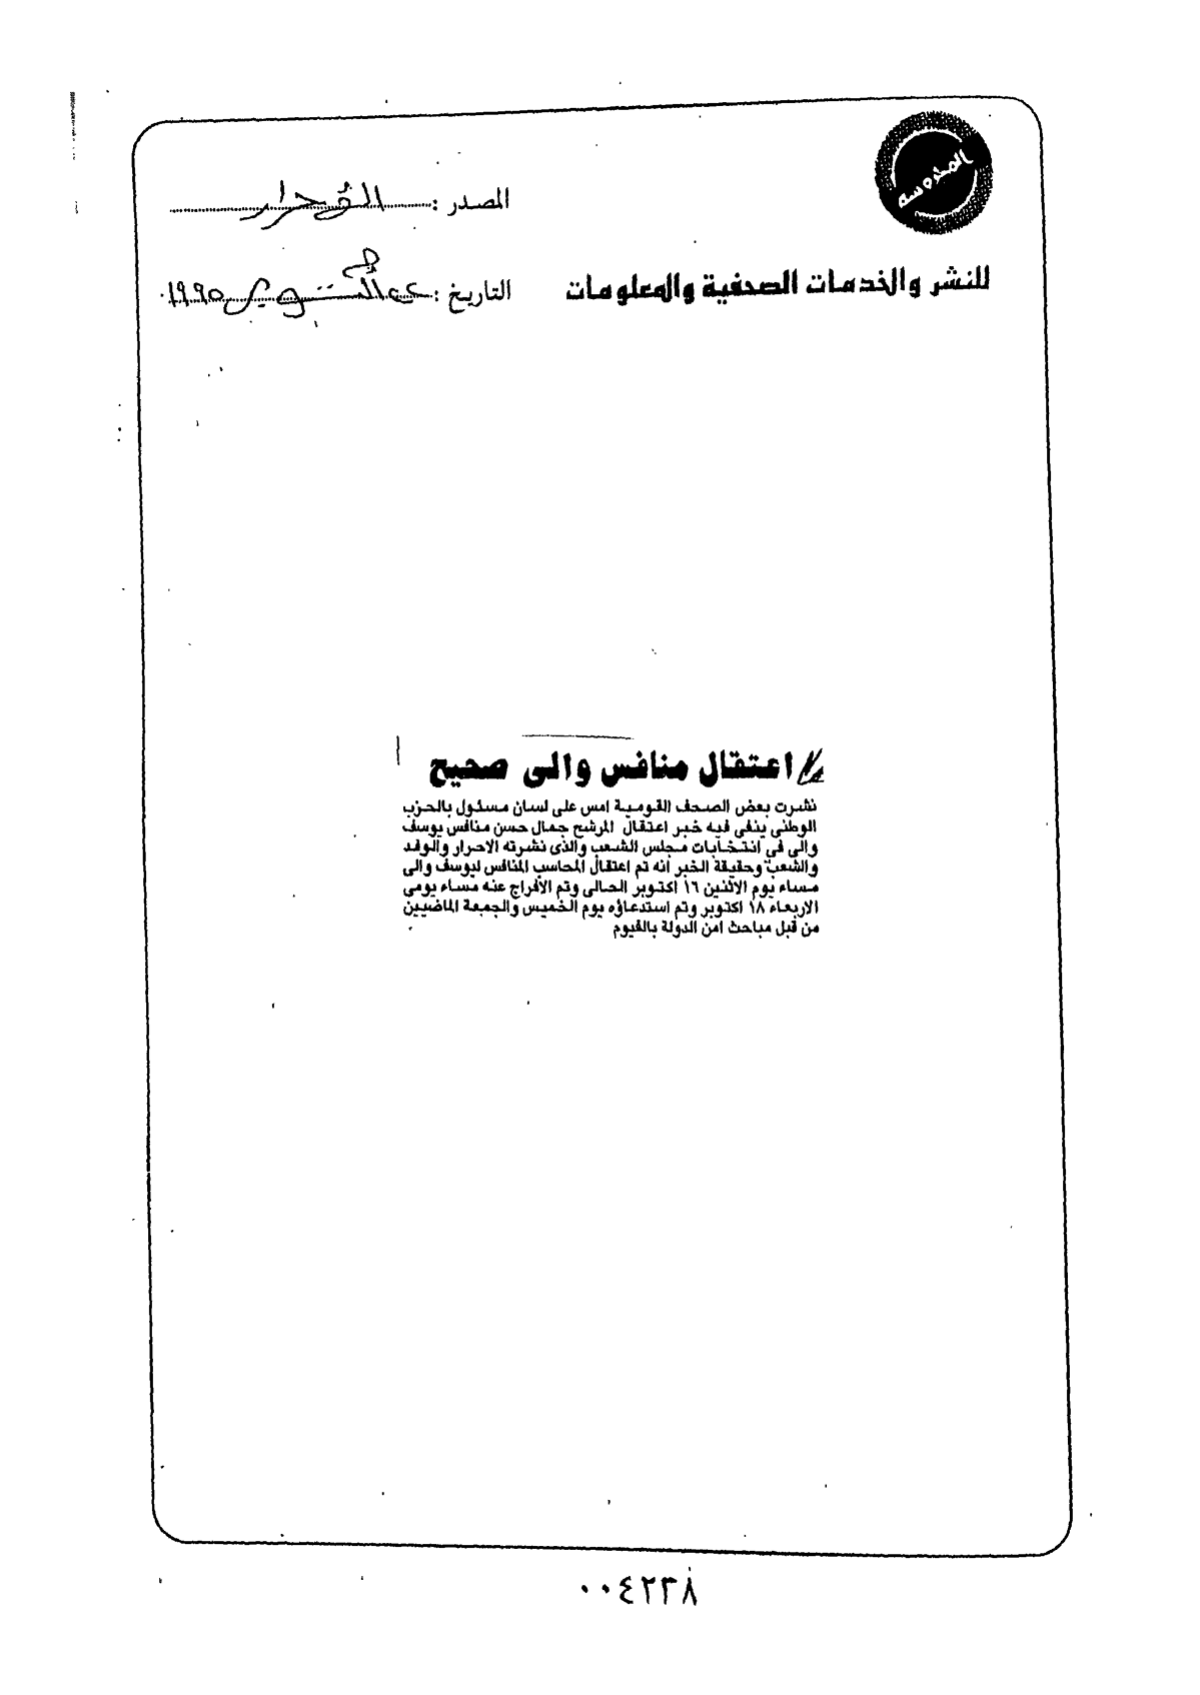 المحروسة
المصدر : الأحرار
للنشر والخدمات الصحفية والمعلومات
التاريخ : ٢٢ أكتوبر ١٩٩٥
اعتقال منافس والى صحيح
نشرت بعض الصحف القومية امس على لسان مسئول بالحزب
الوطنى ينفى فيه خبر اعتقال المرشح جمال حسن منافس يوسف
والى فى انتخابات مجلس الشعب والذى نشرته الاحرار والوفد
والشعب وحقيقة الخبر انه تم اعتقال المحاسب المنافس ليوسف والى
مساء يوم الاثنين ١٦ اكتوبر الحالى وتم الافراج عنه مساء يومى
الاربعاء ١٨ اكتوبر وتم استدعاؤه يوم الخميس والجمعة الماضيين
من قبل مباحث امن الدولة بالفيوم
٠٠٤٢٣٨